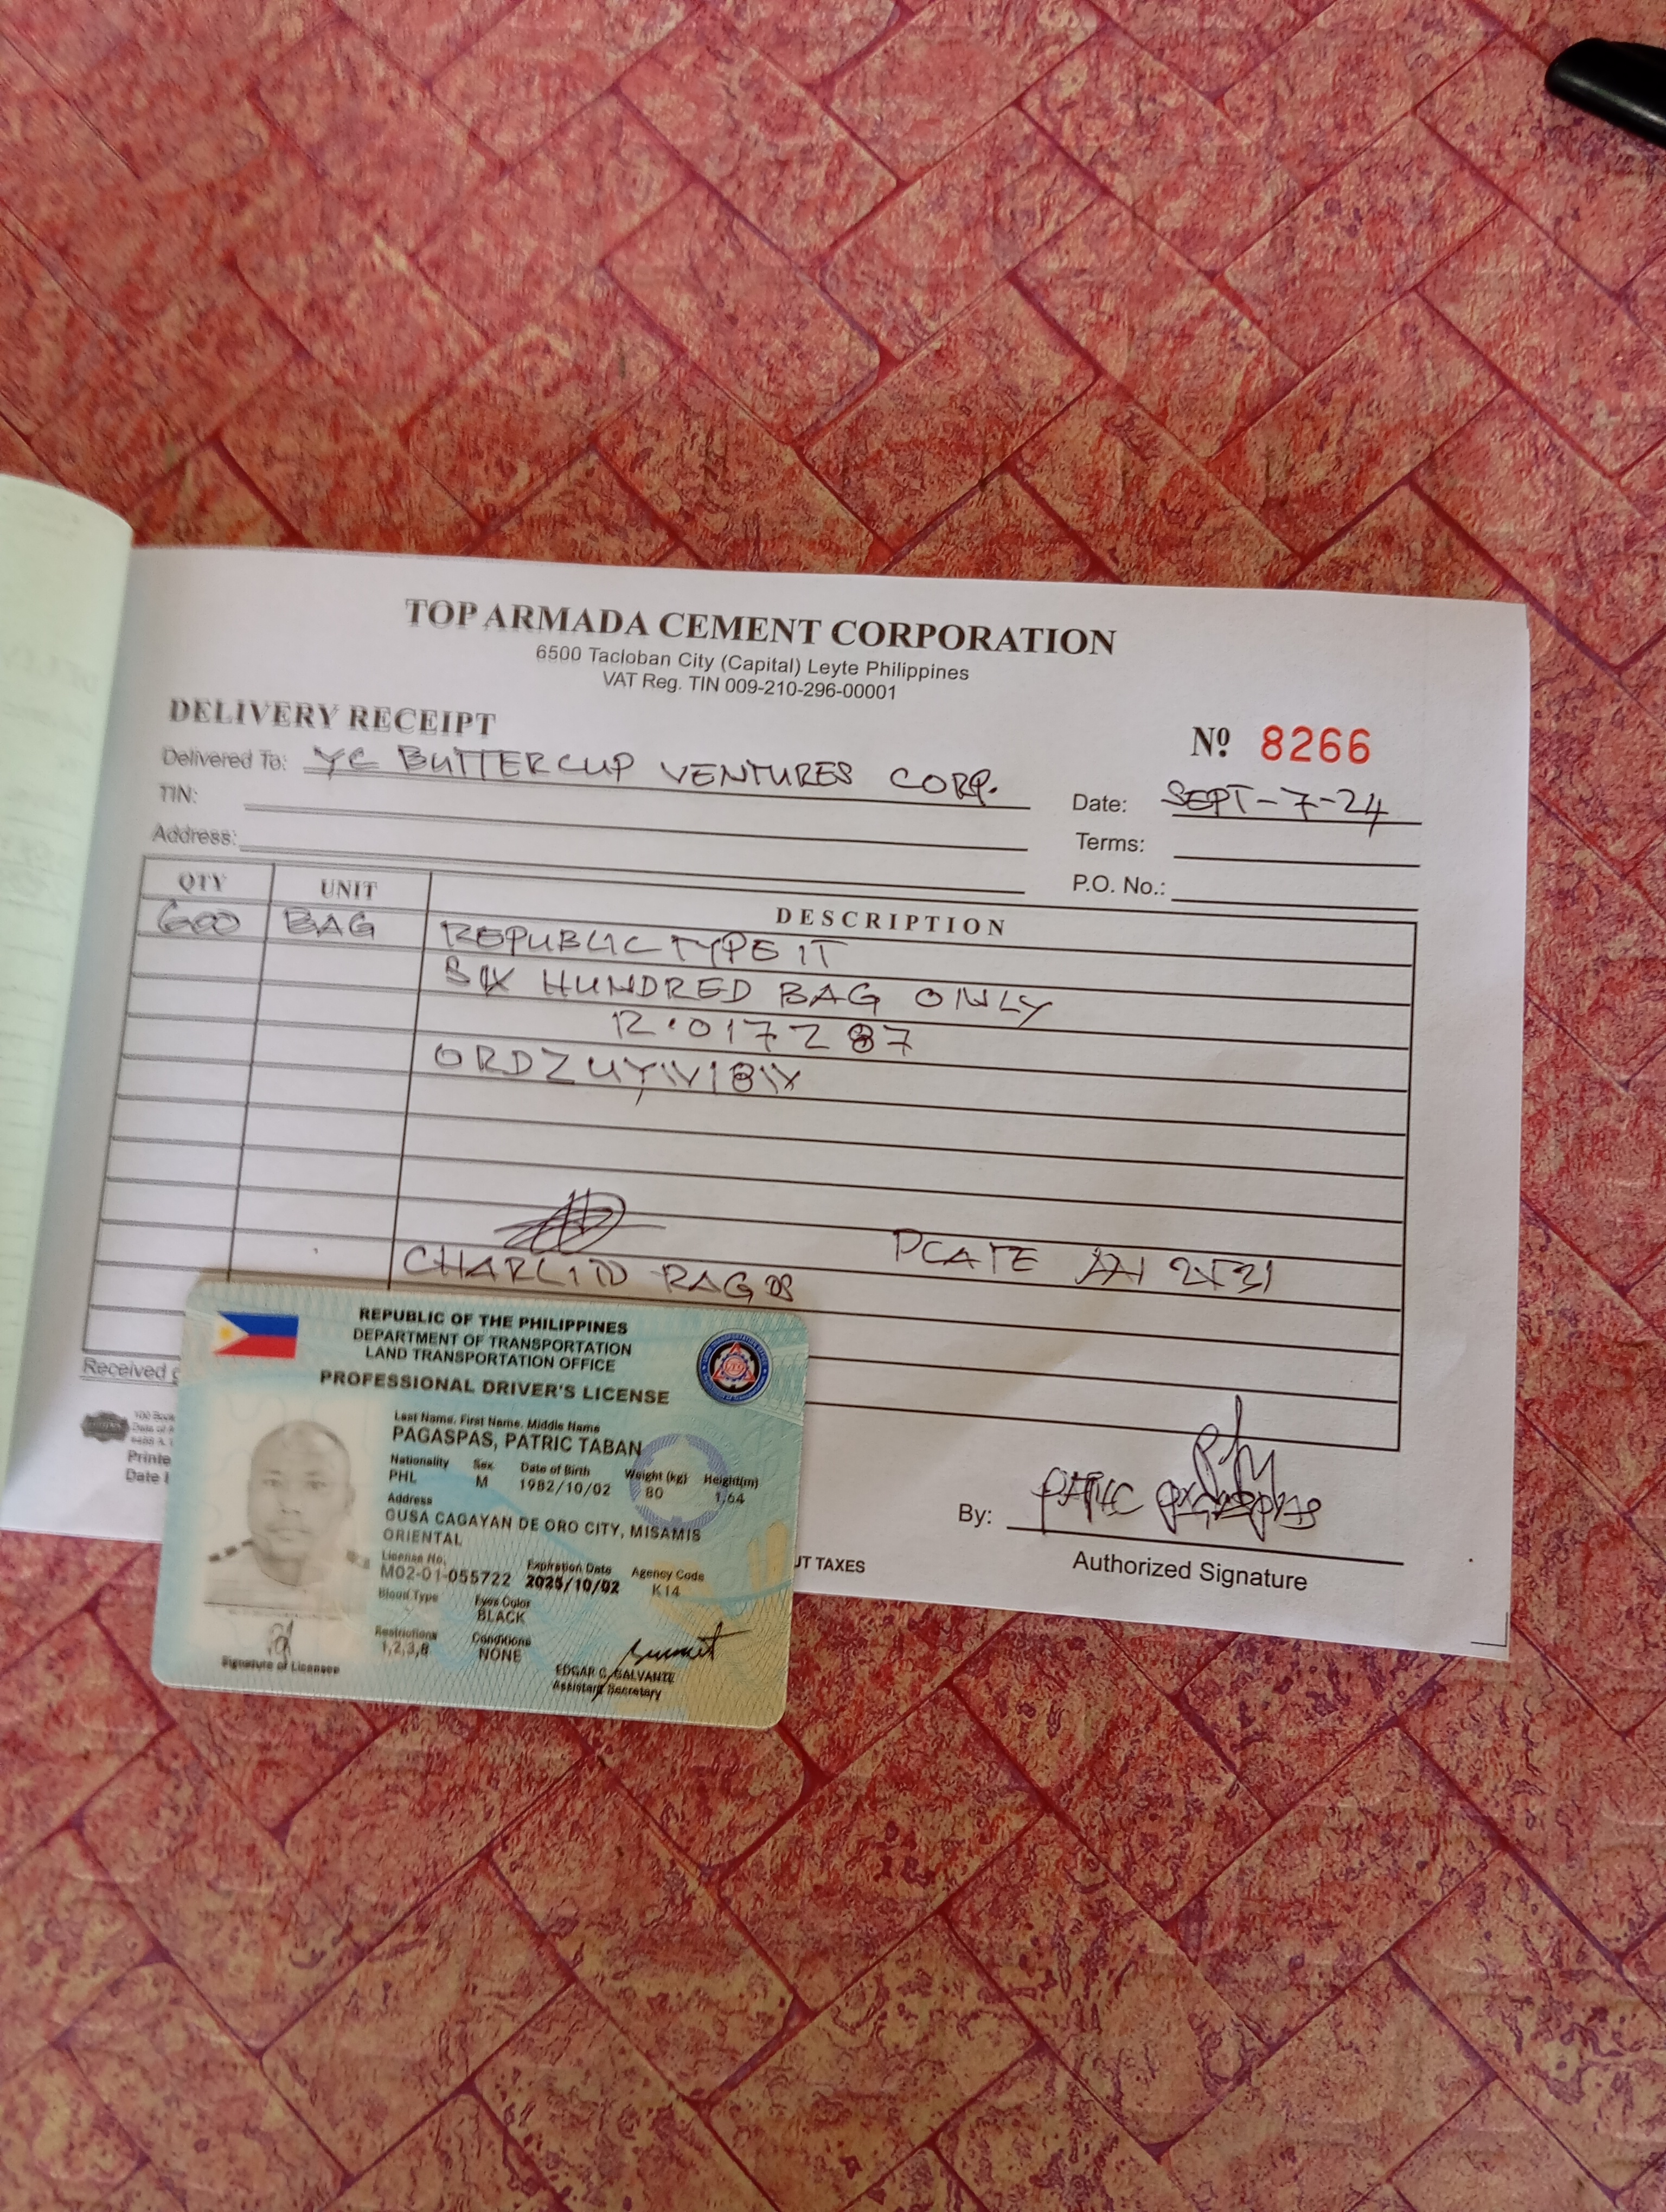 TOP ARMADA CEMENT CORPORATION
6500 Tacloban City (Capital) Leyte Philippines
VAT Reg. TIN 009-210-296-00001
DELIVERY RECEIPT
Nº 8266
Delivered To: YC BUTTERCUP VENTURES CORP.
Date: SEPT-7-24
TIN:
Terms:
Address:
P.O. No.:
QTY UNIT DESCRIPTION
600 BAG REPUBLIC TYPE IT
SIX HUNDRED BAG ONLY
R.017287
CHARLITO RAGOS
REPUBLIC OF THE PHILIPPINES
DEPARTMENT OF TRANSPORTATION
LAND TRANSPORTATION OFFICE
PROFESSIONAL DRIVER'S LICENSE
Last Name, First Name, Middle Name
PAGASPAS, PATRIC TABAN
Nationality Sex Date of Birth Weight (kg) Height(m)
PHL M 1982/10/02 80 1.64
Address
GUSA CAGAYAN DE ORO CITY, MISAMIS
ORIENTAL
License No. Expiration Date Agency Code
M02-01-055722 2025/10/02 K14
Blood Type Eyes Color
BLACK
Restrictions Conditions
1,2,3,8 NONE
Signature of Licensee
EDGAR C. GALVANTE
Assistant Secretary
Received
Printe
Date
UT TAXES
By: PATRIC
Authorized Signature